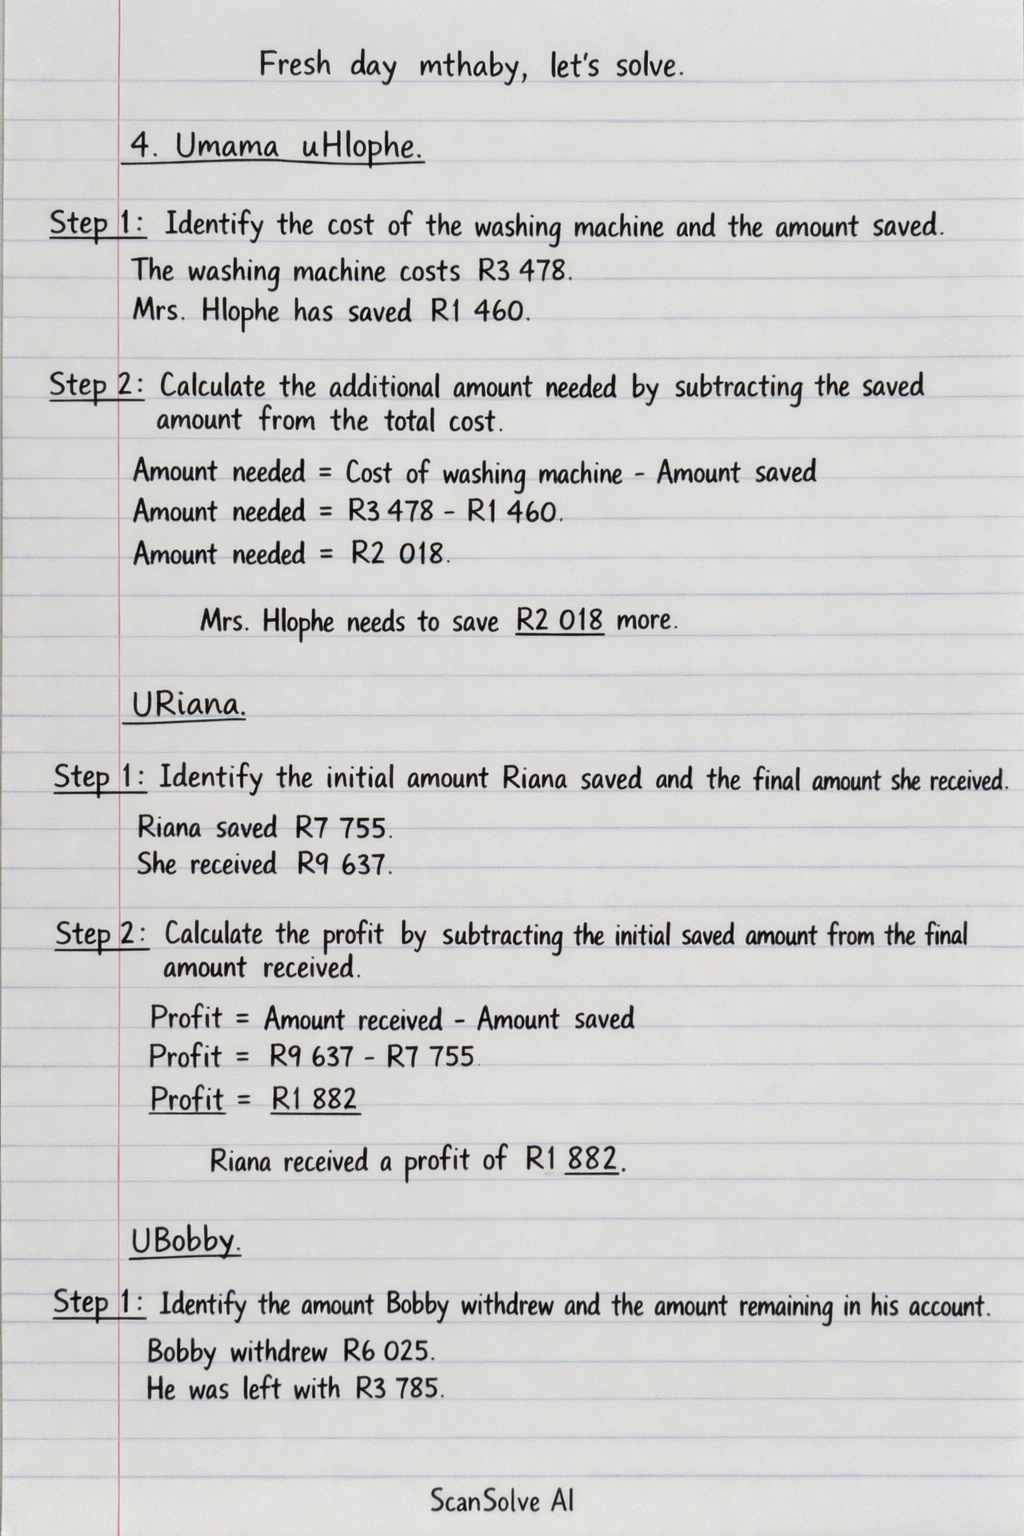 Fresh day mthaby, let's solve.
4. Umama uHlophe.
Step 1: Identify the cost of the washing machine and the amount saved.
The washing machine costs R3 478.
Mrs. Hlophe has saved R1 460.
Step 2: Calculate the additional amount needed by subtracting the saved
amount from the total cost.
Amount needed = Cost of washing machine - Amount saved
Amount needed = R3 478 - R1 460.
Amount needed = R2 018.
Mrs. Hlophe needs to save R2 018 more.
URiana.
Step 1: Identify the initial amount Riana saved and the final amount she received.
Riana saved R7 755.
She received R9 637.
Step 2: Calculate the profit by subtracting the initial saved amount from the final
amount received.
Profit = Amount received - Amount saved
Profit = R9 637 - R7 755
Profit = R1 882
Riana received a profit of R1 882.
UBobby.
Step 1: Identify the amount Bobby withdrew and the amount remaining in his account.
Bobby withdrew R6 025.
He was left with R3 785.
ScanSolve AI